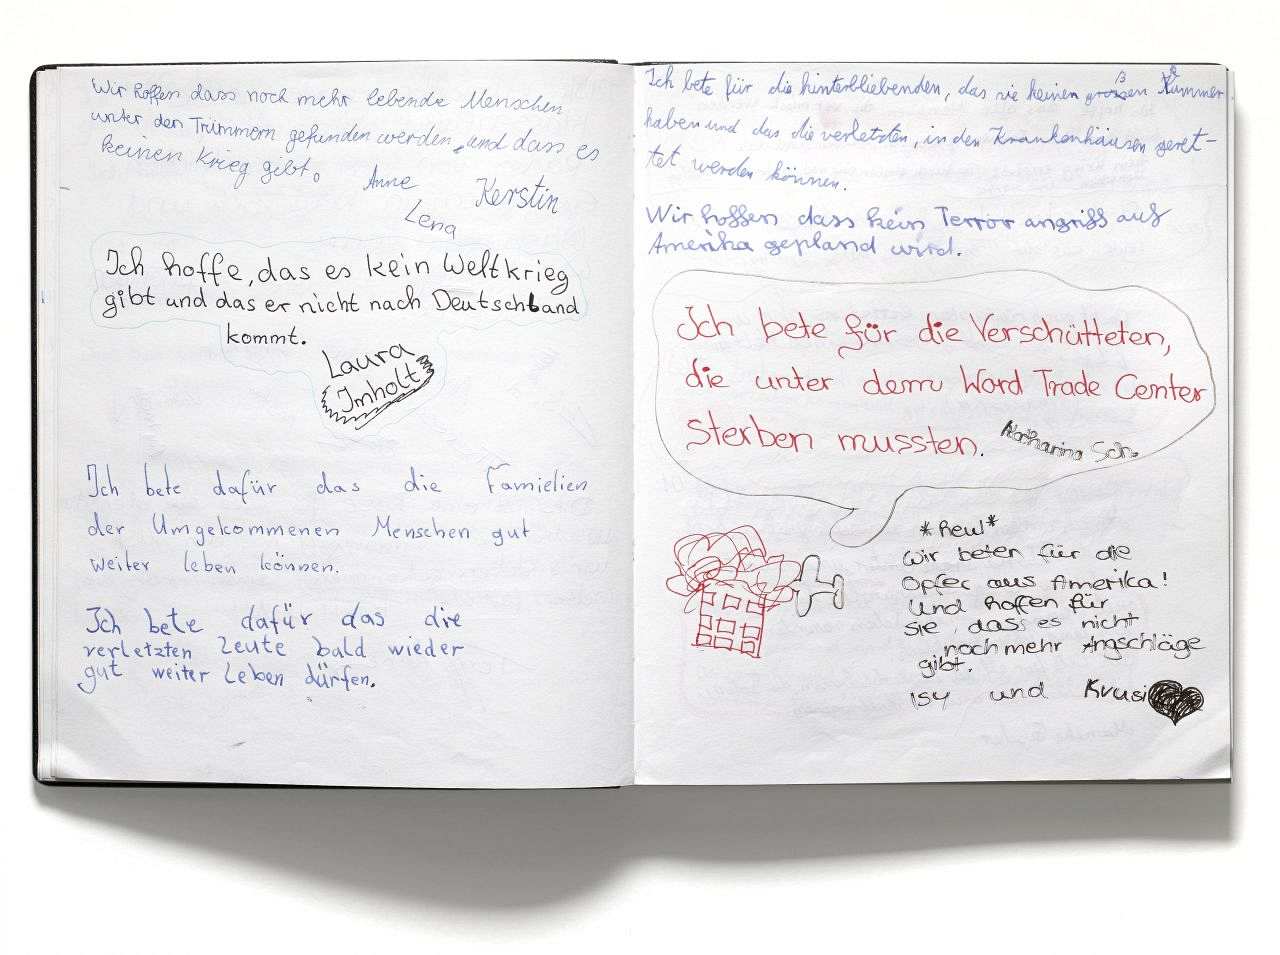 Wir hoffen dass noch mehr lebende Menschen
unter den Trümmern gefunden werden, und dass es
keinen Krieg gibt.
Anne Kerstin
Lena
Ich hoffe, das es kein Weltkrieg
gibt und das er nicht nach Deutschland
kommt.
Laura
Imholt
Ich bete dafür das die Famielien
der Umgekommenen Menschen gut
weiter leben können.
Ich bete dafür das die
verletzten Leute bald wieder
gut weiter leben dürfen.
Ich bete für die hinterbliebenden, das sie keinen großen Kummer
haben und das die verletzten, in den Krankenhäusen geret-
tet werden können.
Wir hoffen dass kein Terror angriff auf
Amerika gepland wird.
Ich bete für die Verschütteten,
die unter dem Word Trade Center
sterben mussten.
Katharina Sch.
*heul*
Wir beten für die
Opfer aus Amerika!
Und hoffen für
sie, dass es nicht
noch mehr Angschläge
gibt.
Isy und Krusi